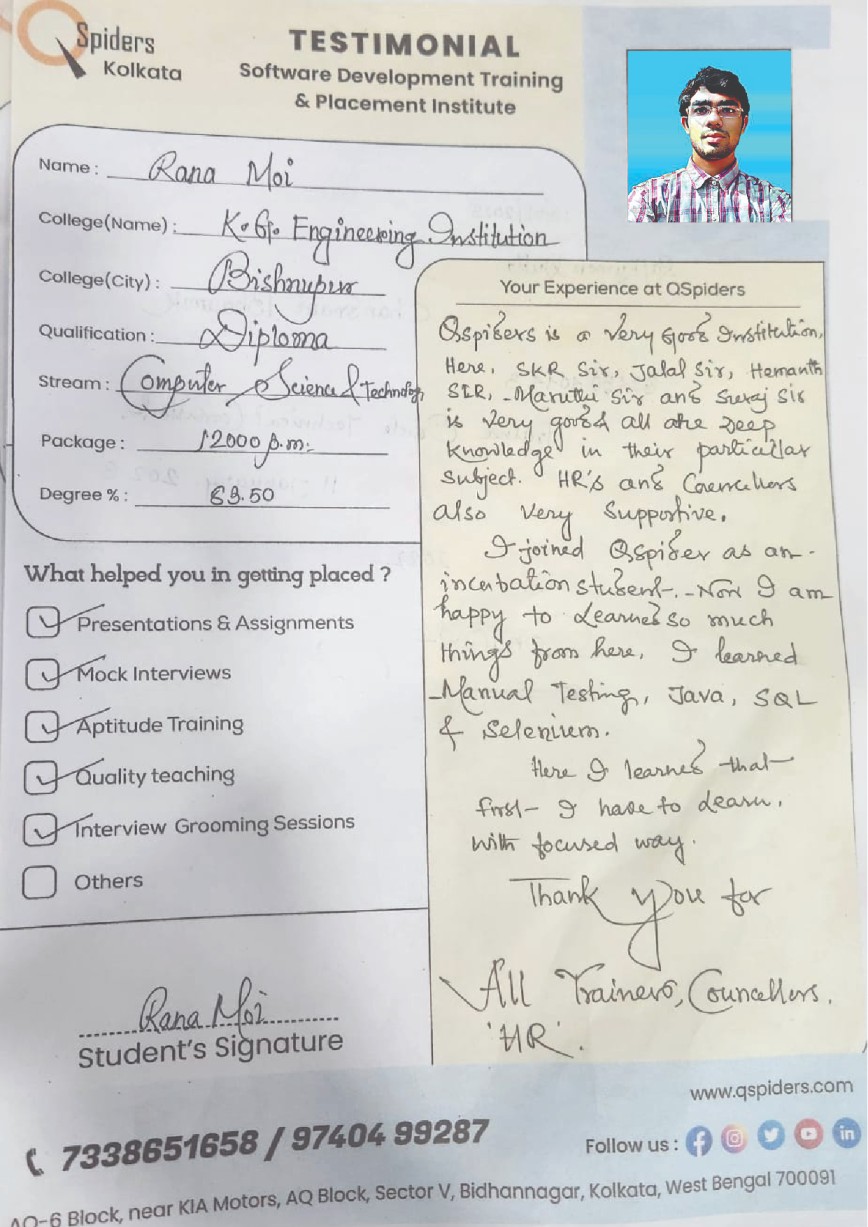 QSpiders
Kolkata
TESTIMONIAL
Software Development Training
& Placement Institute
Name : Rana Moi
College(Name) : K.G. Engineering Institution
College(City) : Bishnupur
Qualification : Diploma
Stream : Computer Science & Technology
Package : 12000 p.m.
Degree % : 69.50
What helped you in getting placed ?
Presentations & Assignments
Mock Interviews
Aptitude Training
Quality teaching
Interview Grooming Sessions
Others
Rana Moi
Student's Signature
Your Experience at QSpiders
Qspiders is a very good Institution,
Here, SKR Sir, Jalal Sir, Hemanth
SIR, Maruthi Sir and Suraj Sir
is very good all are Deep
knowledge in their particular
subject. HR's and Councellors
also very supportive.
I joined QSpider as an
incubation student. Now I am
happy to Learned so much
things from here, I learned
Manual Testing, Java, SQL
& Selenium.
Here I learned that
first I have to Learn,
with focused way.
Thank you for
All Trainers, Councellors.
'HR'.
www.qspiders.com
7338651658 / 97404 99287
Follow us :
AQ-6 Block, near KIA Motors, AQ Block, Sector V, Bidhannagar, Kolkata, West Bengal 700091